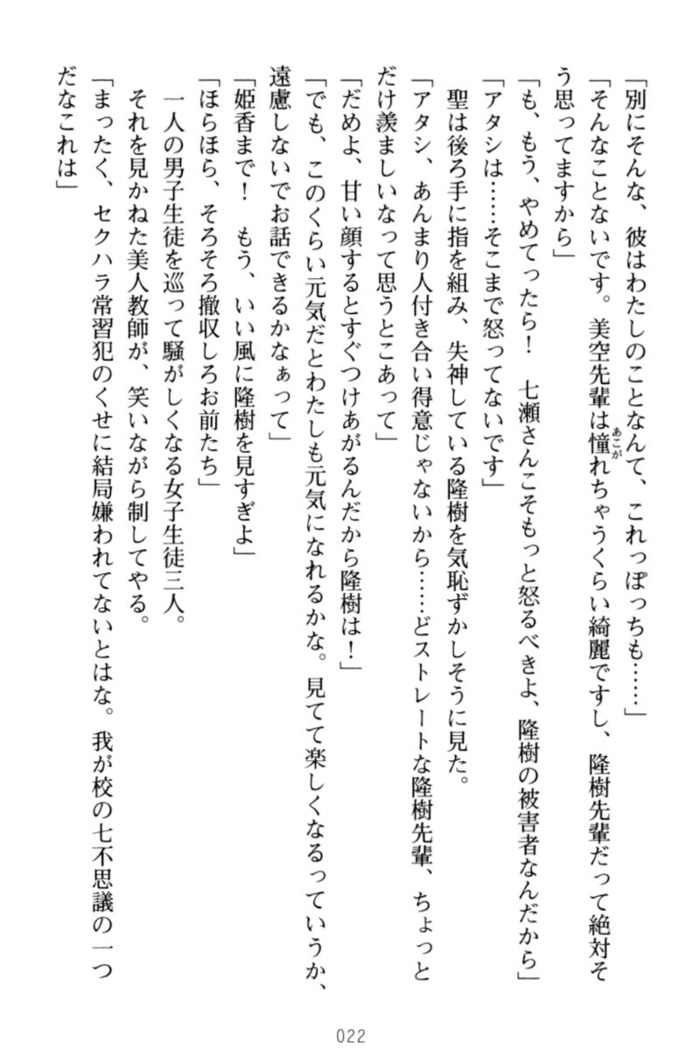 「別にそんな、彼はわたしのことなんて、これっぽっちも……」
「そんなことないです。美空先輩は憧れちゃうくらい綺麗ですし、隆樹先輩だって絶対そ
あこが
う思ってますから」
「も、もう、やめてったら！　七瀬さんこそもっと怒るべきよ、隆樹の被害者なんだから」
「アタシは……そこまで怒ってないです」
　聖は後ろ手に指を組み、失神している隆樹を気恥ずかしそうに見た。
「アタシ、あんまり人付き合い得意じゃないから……どストレートな隆樹先輩、ちょっと
だけ羨ましいなって思うとこあって」
「だめよ、甘い顔するとすぐつけあがるんだから隆樹は！」
「でも、このくらい元気だとわたしも元気になれるかな。見てて楽しくなるっていうか、
遠慮しないでお話できるかなぁって」
「姫香まで！　もう、いい風に隆樹を見すぎよ」
「ほらほら、そろそろ撤収しろお前たち」
　一人の男子生徒を巡って騒がしくなる女子生徒三人。
　それを見かねた美人教師が、笑いながら制してやる。
「まったく、セクハラ常習犯のくせに結局嫌われてないとはな。我が校の七不思議の一つ
だなこれは」
022